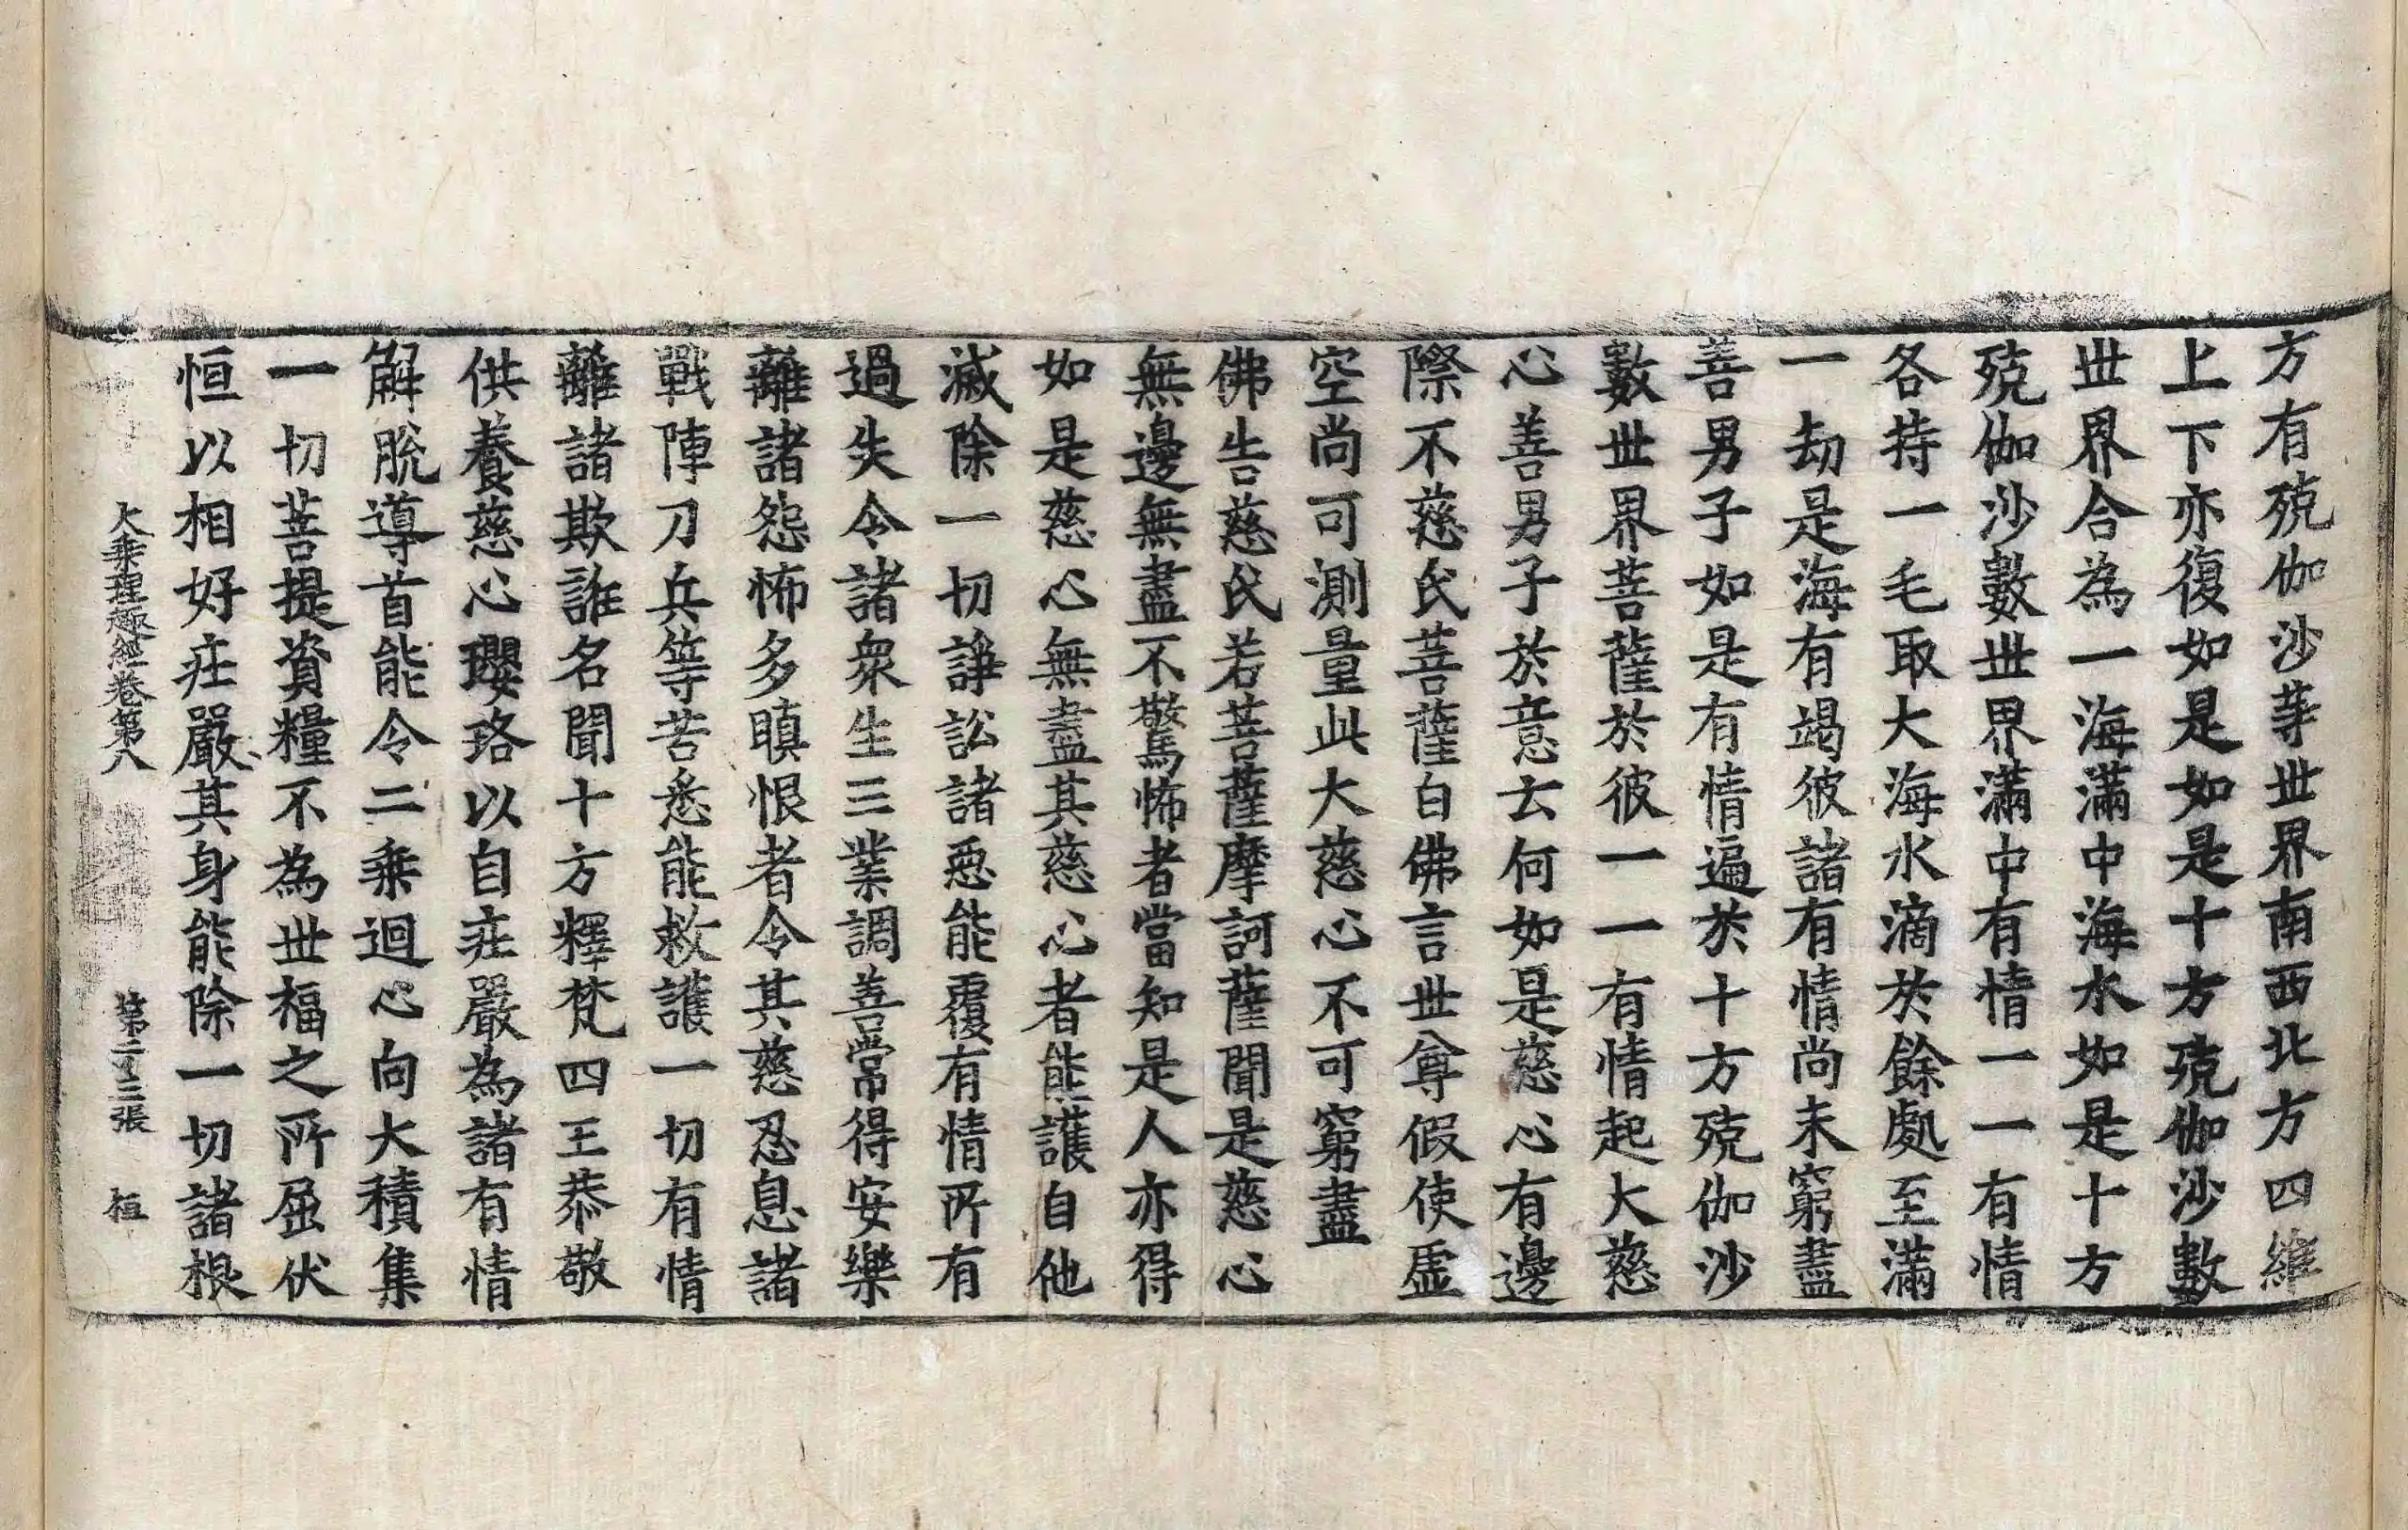 方有殑伽沙等世界南西北方四維
上下亦復如是如是十方殑伽沙數
世界合為一海滿中海水如是十方
殑伽沙數世界滿中有情一一有情
各持一毛取大海水滴於餘處至滿
一劫是海有竭彼諸有情尚未窮盡
善男子如是有情遍於十方殑伽沙
數世界菩薩於彼一一有情起大慈
心善男子於意云何如是慈心有邊
際不慈氏菩薩白佛言世尊假使虛
空尚可測量此大慈心不可窮盡
佛告慈氏若菩薩摩訶薩聞是慈心
無邊無盡不驚怖者當知是人亦得
如是慈心無盡其慈心者能護自他
滅除一切諍訟諸惡能覆有情所有
過失令諸眾生三業調善常得安樂
離諸怨怖多瞋恨者令其慈忍息諸
戰陣刀兵等苦悉能救護一切有情
離諸欺誑名聞十方釋梵四王恭敬
供養慈心瓔珞以自莊嚴為諸有情
解脫導首能令二乘迴心向大積集
一切菩提資糧不為世福之所屈伏
恒以相好莊嚴其身能除一切諸根
大乘理趣經卷第八 第二十三張 桓